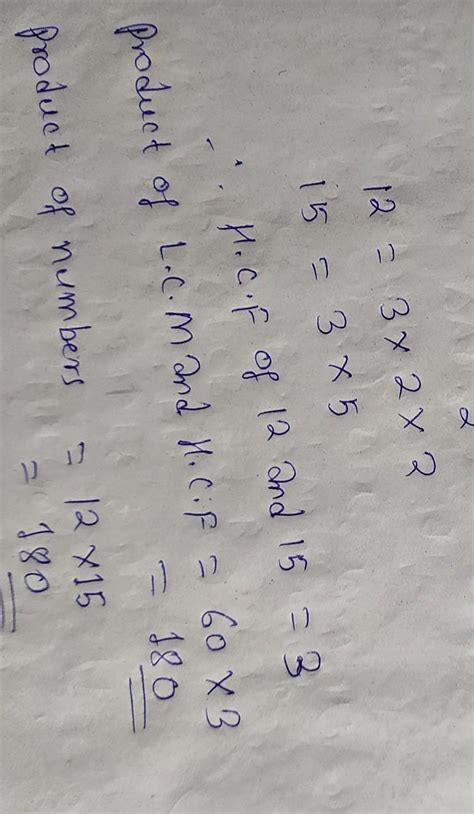 2
12 = 3 × 2 × 2
15 = 3 × 5
∴ H.C.F of 12 and 15 = 3
product of L.C.M and H.C.F = 60 × 3
= 180
product of numbers = 12 × 15
= 180